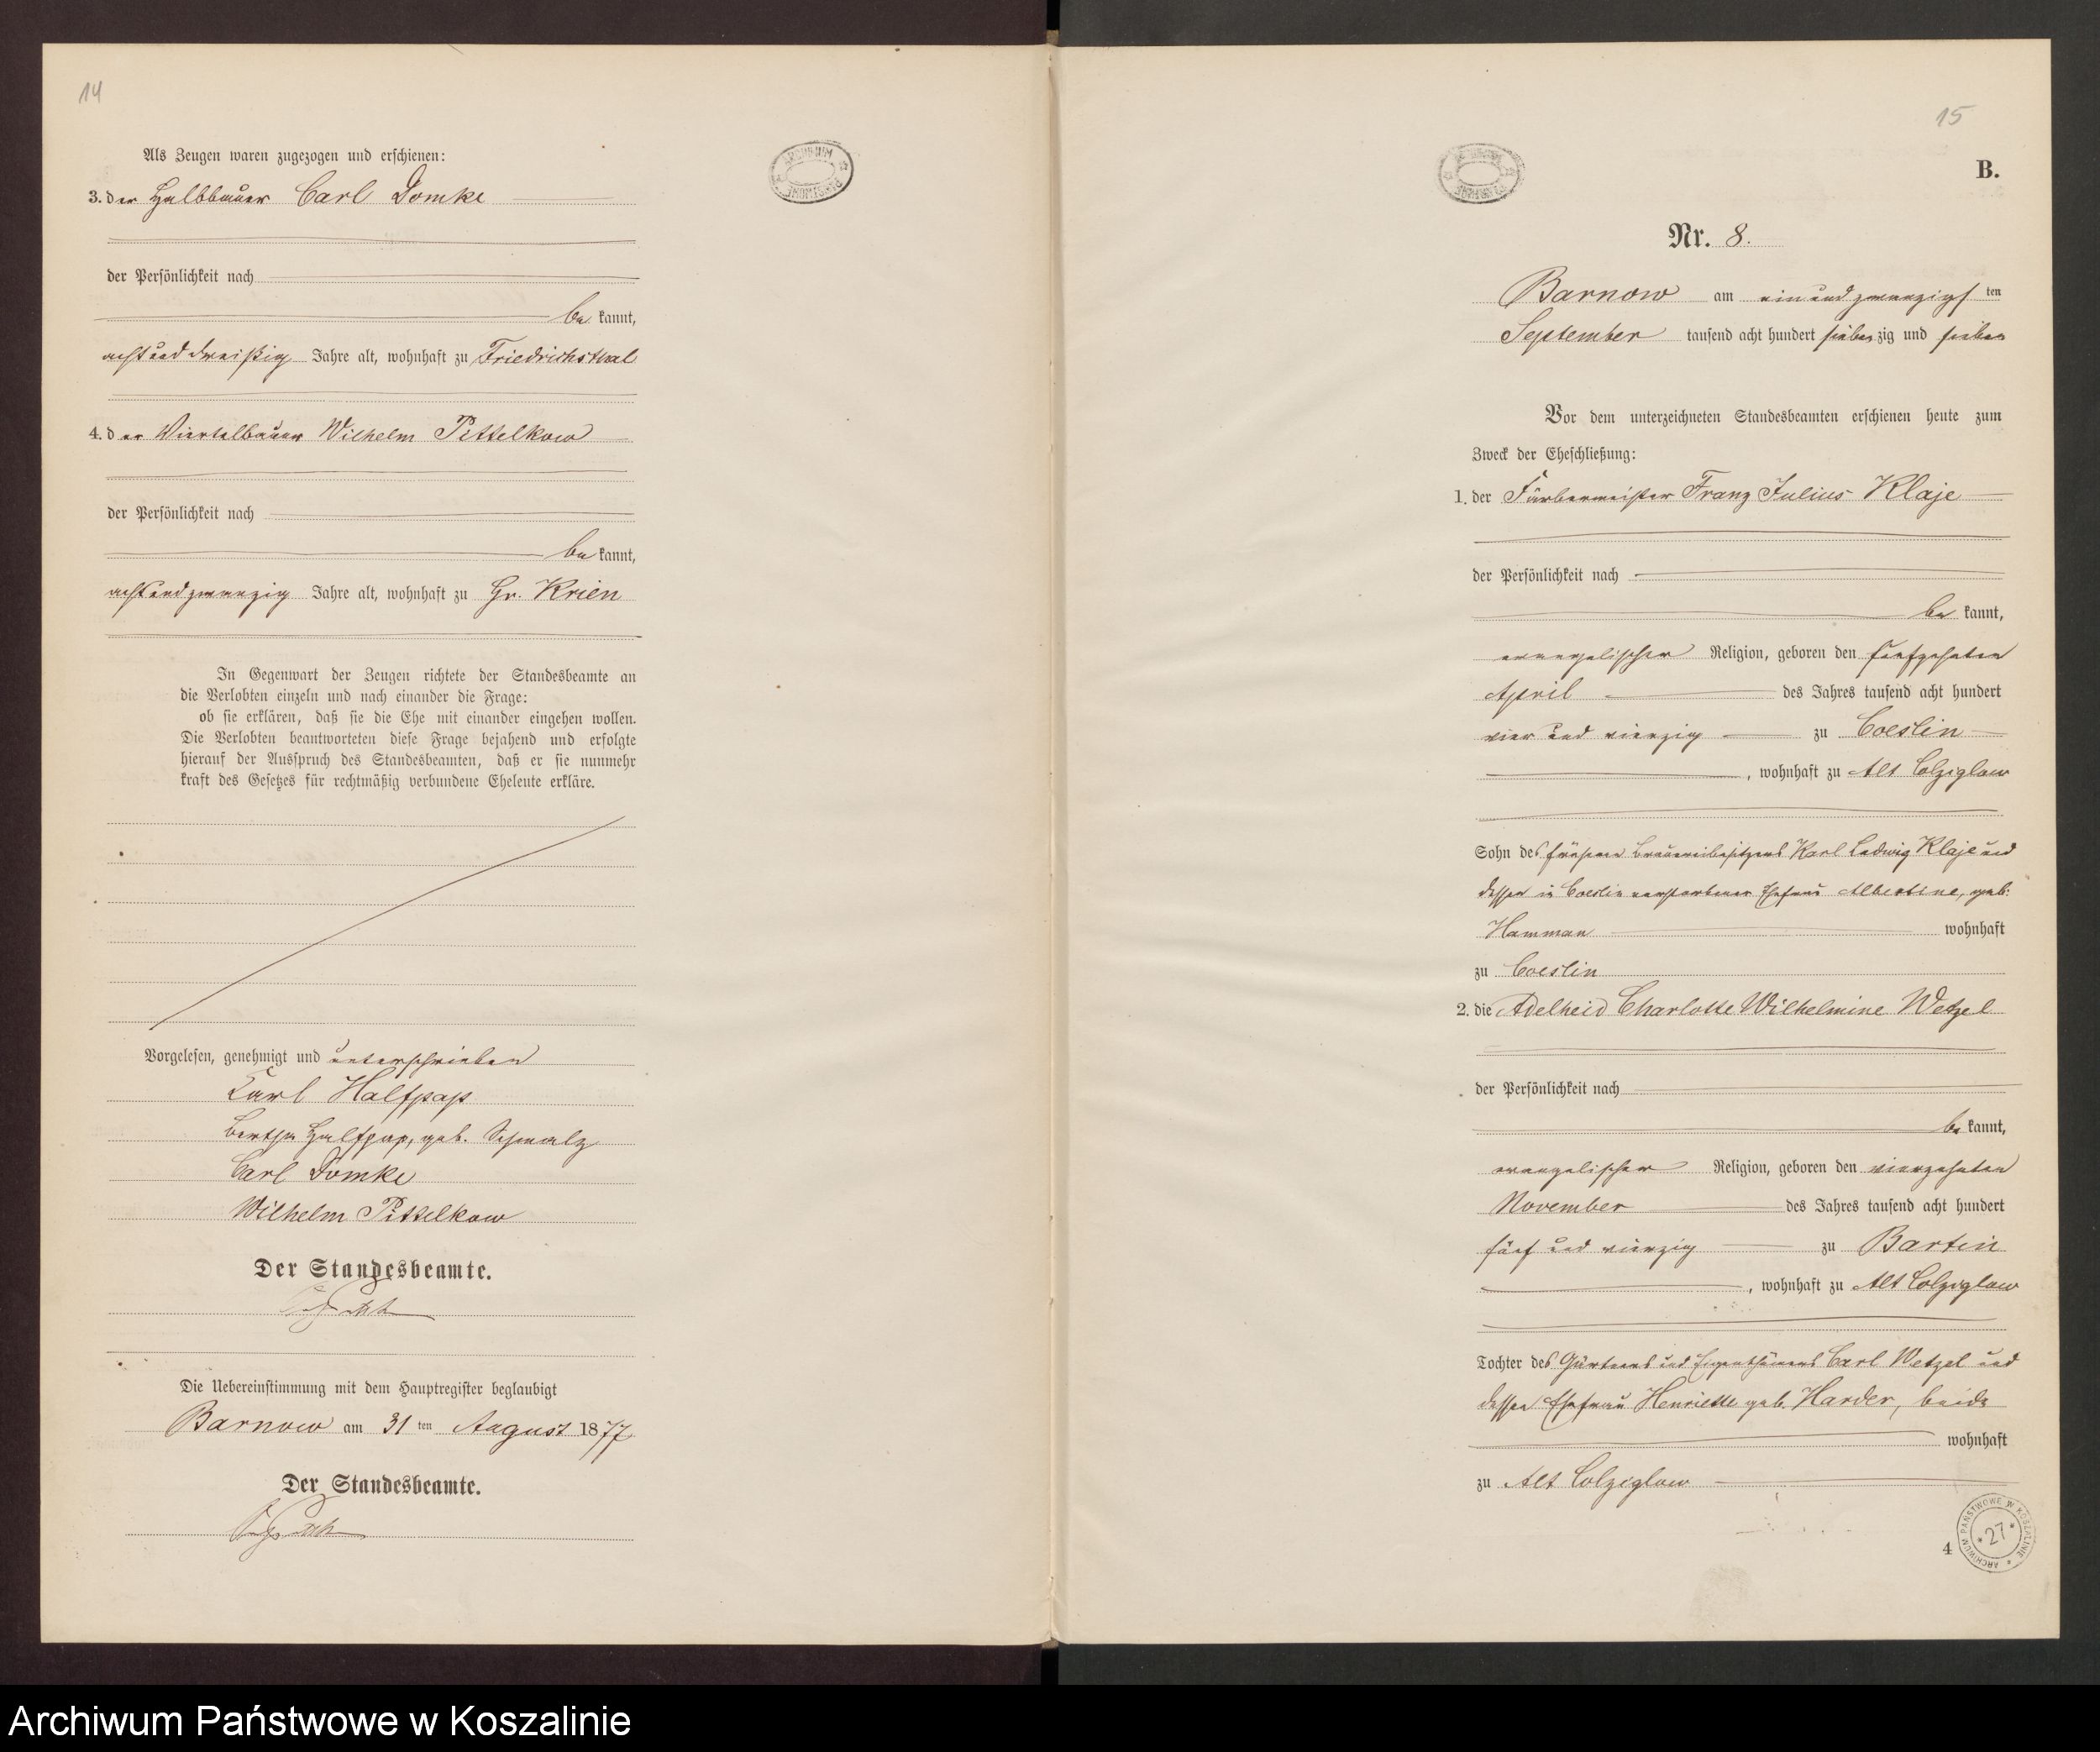 14
Als Zeugen waren zugezogen und erschienen:
3. der Halbbauer Carl Domke
der Persönlichkeit nach
be kannt,
acht und dreißig Jahre alt, wohnhaft zu Friedrichsthal
4. der Viertelbauer Wilhelm Pittelkow
der Persönlichkeit nach
be kannt,
acht und zwanzig Jahre alt, wohnhaft zu Gr. Krien
In Gegenwart der Zeugen richtete der Standesbeamte an
die Verlobten einzeln und nach einander die Frage:
ob sie erklären, daß sie die Ehe mit einander eingehen wollen.
Die Verlobten beantworteten diese Frage bejahend und erfolgte
hierauf der Ausspruch des Standesbeamten, daß er sie nunmehr
kraft des Gesetzes für rechtmäßig verbundene Eheleute erkläre.
Vorgelesen, genehmigt und unterschrieben
Karl Halfpap
Bertha Halfpap, geb. Schmalz
Carl Domke
Wilhelm Pittelkow
Der Standesbeamte.
Die Uebereinstimmung mit dem Hauptregister beglaubigt
Barnow am 31 ten August 1877
Der Standesbeamte.
15
B.
Nr. 8.
Barnow am ein und zwanzigs ten
September tausend acht hundert siebenzig und sieben
Vor dem unterzeichneten Standesbeamten erschienen heute zum
Zweck der Eheschließung:
1. der Färbermeister Franz Julius Klaje
der Persönlichkeit nach
be kannt,
evangelischer Religion, geboren den fünfzehnten
April des Jahres tausend acht hundert
vier und vierzig zu Coeslin
, wohnhaft zu Alt Colziglow
Sohn des früheren Brauereibesitzers Karl Ludwig Klaje und
dessen in Coeslin verstorbener Ehefrau Albertine, geb.
Hamman wohnhaft
zu Coeslin
2. die Adelheid Charlotte Wilhelmine Wetzel
der Persönlichkeit nach
be kannt,
evangelischer Religion, geboren den vierzehnten
November des Jahres tausend acht hundert
fünf und vierzig zu Bartin
, wohnhaft zu Alt Colziglow
Tochter des Gärtners und Eigenthümers Carl Wetzel und
dessen Ehefrau Henriette geb. Harder, beide
wohnhaft
zu Alt Colziglow
4
ARCHIWUM PAŃSTWOWE W KOSZALINIE
* 27 *
Archiwum Państwowe w Koszalinie